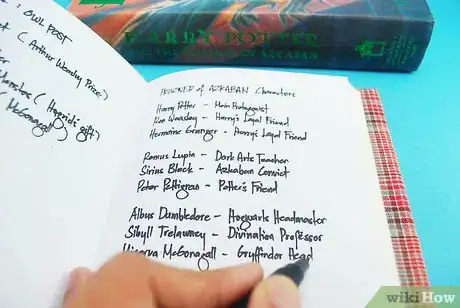 : OWL POST
(Arthur Weasley Prize)
(Hagrid's gift)
McGonagall)
HARRY POTTER
AND THE PRISONER OF AZKABAN
PRISONER of AZKABAN Characters
Harry Potter - Main Protagonist
Ron Weasley - Harry's Loyal Friend
Hermione Granger - Harry's Loyal Friend
Remus Lupin - Dark Arts Teacher
Sirius Black - Azkaban Convict
Peter Pettigrew - Potter's Friend
Albus Dumbledore - Hogwarts Headmaster
Sibyll Trelawney - Divination Professor
Minerva McGonagall - Gryffindor Head
wikiHow